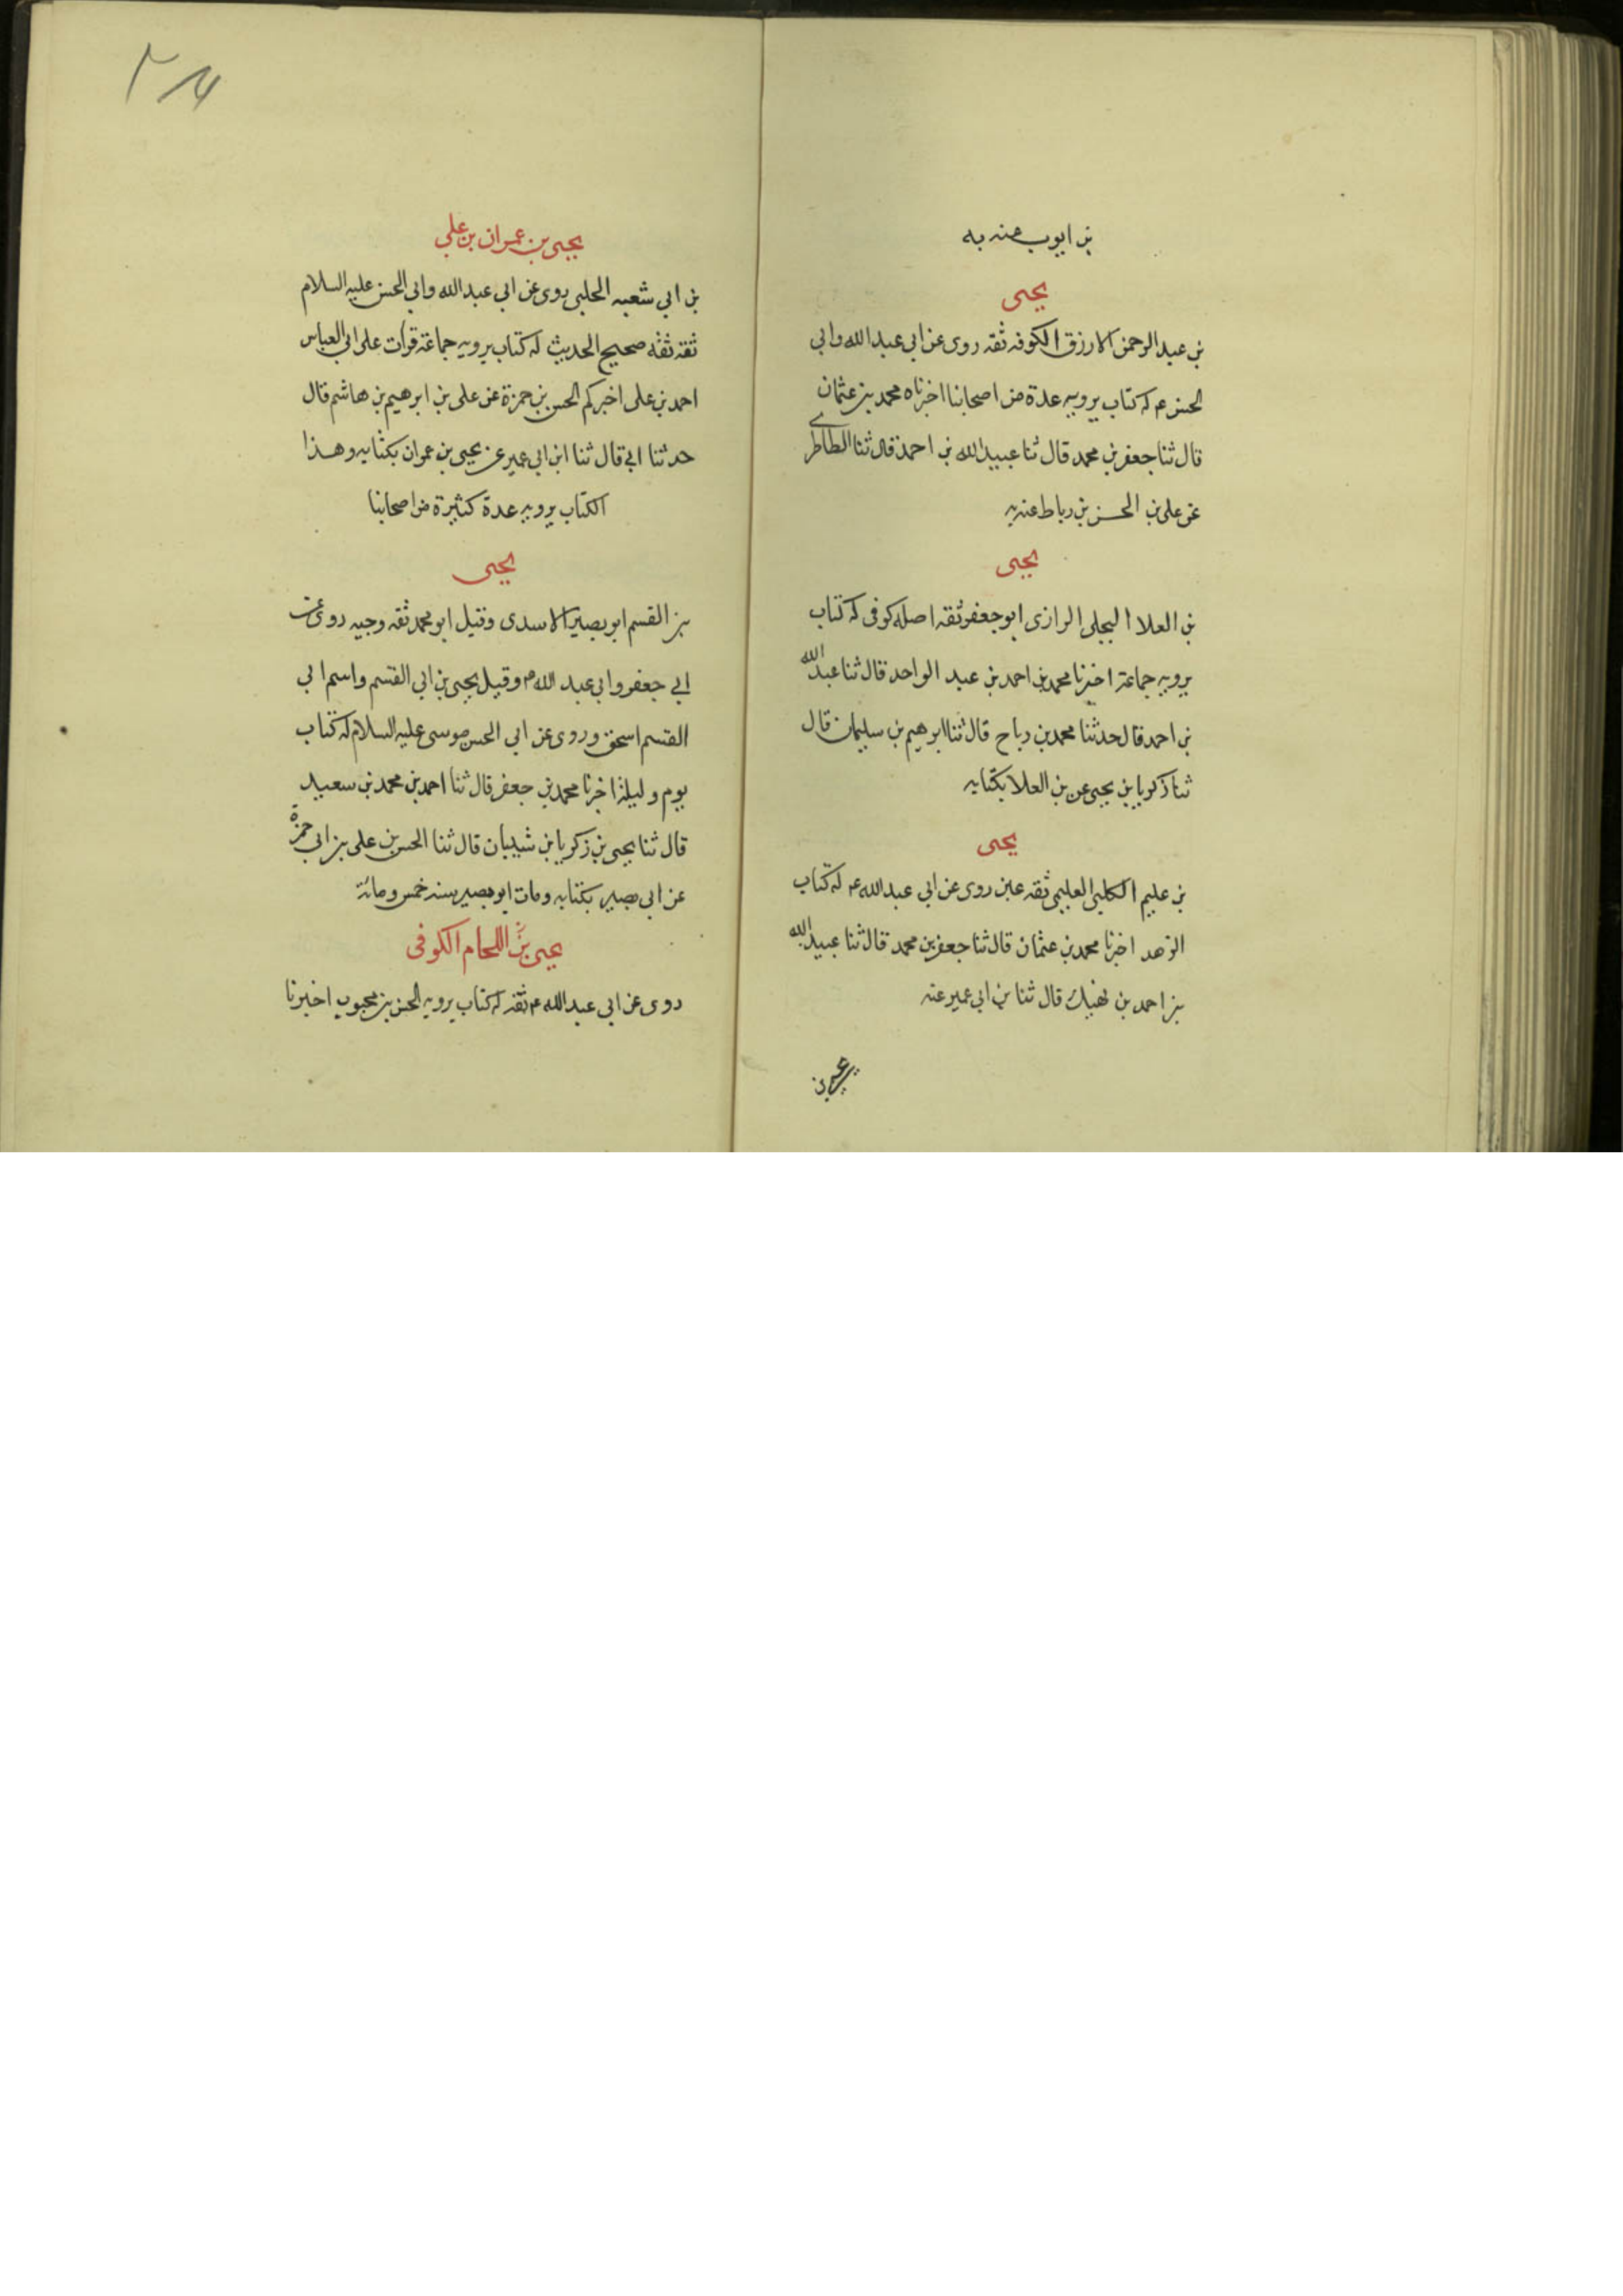 بن ايوب عنه به
يحيى
بن عبد الرحمن الازرق الكوفه ثقه روى عن ابى عبد الله وابي
الحسن ع له كتاب يرويه عدة من اصحابنا اخبرناه محمد بن عثمان
قال ثنا جعفر بن محمد قال ثنا عبيد الله بن احمد قال ثنا الطاطرى
عن على بن الحسن بن رباط عنه به
يحيى
بن العلا البجلى الرازى ابو جعفر ثقه اصله كوفى له كتاب
يرويه جماعة اخبرنا محمد بن احمد بن عبد الواحد قال ثنا عبد الله
بن احمد قال حدثنا محمد بن رباح قال ثنا ابرهيم بن سليمان قال
ثنا زكريا بن يحيى عن بن العلا بكتابه
يحيى
بن عليم الكلبى العليمى ثقه عين روى عن ابي عبد الله ع له كتاب
الزهد اخبرنا محمد بن عثمان قال ثنا جعفر بن محمد قال ثنا عبيد الله
بن احمد بن نهيك قال ثنا بن ابى عمير عنه
يحيى بن عمران بن علي
بن ابي شعبه الحلبى روى عن ابي عبد الله وابي الحسن عليه السلام
ثقه ثقه صحيح الحديث له كتاب يرويه جماعة قرات على ابي العباس
احمد بن على اخبركم الحسن بن حمزة عن على بن ابرهيم بن هاشم قال
حدثنا ابي قال ثنا ابن ابى عمير عن يحيى بن عمران بكتابه وهذا
الكتاب يرويه عدة كثيرة من اصحابنا
يحيى
بن القسم ابو بصير الاسدى وقيل ابو محمد ثقه وجيه روى عن
ابي جعفر وابى عبد الله م وقيل يحيى بن ابي القسم واسم ابي
القسم اسحق وروى عن ابي الحسن موسى عليه السلام له كتاب
يوم وليلة اخبرنا محمد بن جعفر قال ثنا احمد بن محمد بن سعيد
قال ثنا يحيى بن زكريا بن شيبان قال ثنا الحسن بن على بن ابى حمزة
عن ابى بصير بكتابه ومات ابو بصير سنه خمس ومائة
يحيى بن اللحام الكوفى
روى عن ابي عبد الله ع ثقه له كتاب يرويه الحسن بن محبوب اخبرنا